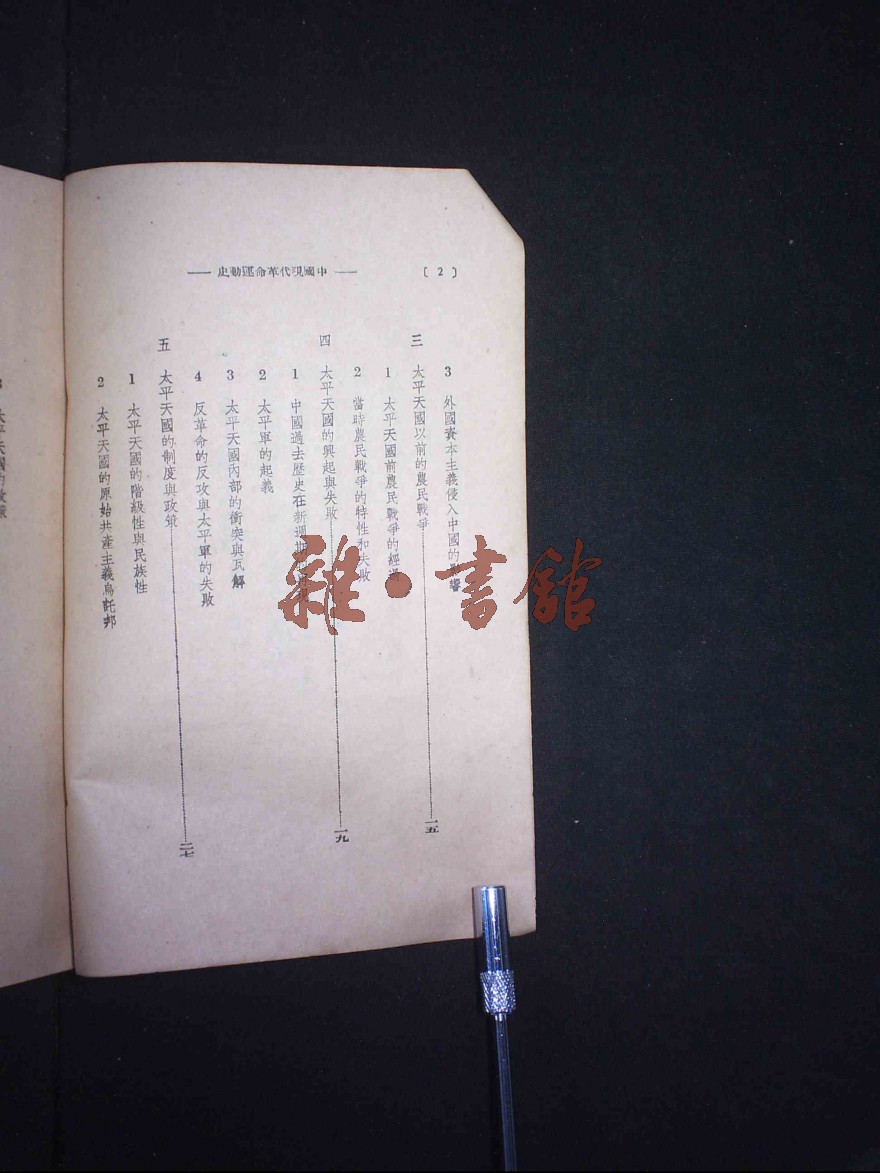 [2]
—— 中國現代革命運動史 ——
3 外國資本主義侵入中國的影響
三 太平天國以前的農民戰爭 一五
1 太平天國前農民戰爭的經過
2 當時農民戰爭的特性和失敗
四 太平天國的興起與失敗 一九
1 中國過去歷史在新週期
2 太平軍的起義
3 太平天國內部的衝突與瓦解
4 反革命的反攻與太平軍的失敗
五 太平天國的制度與政策 二七
1 太平天國的階級性與民族性
2 太平天國的原始共產主義烏託邦
雜·書館